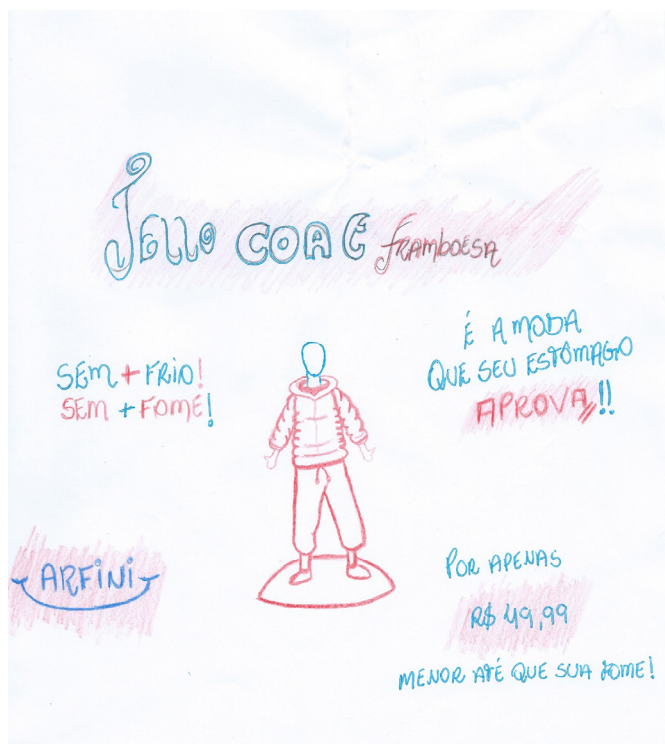 Jello COAT framboesa
SEM + FRIO!
SEM + FOME!
É A MODA
QUE SEU ESTÔMAGO
APROVA!!
ARFINI
POR APENAS
R$ 49,99
MENOR ATÉ QUE SUA FOME!